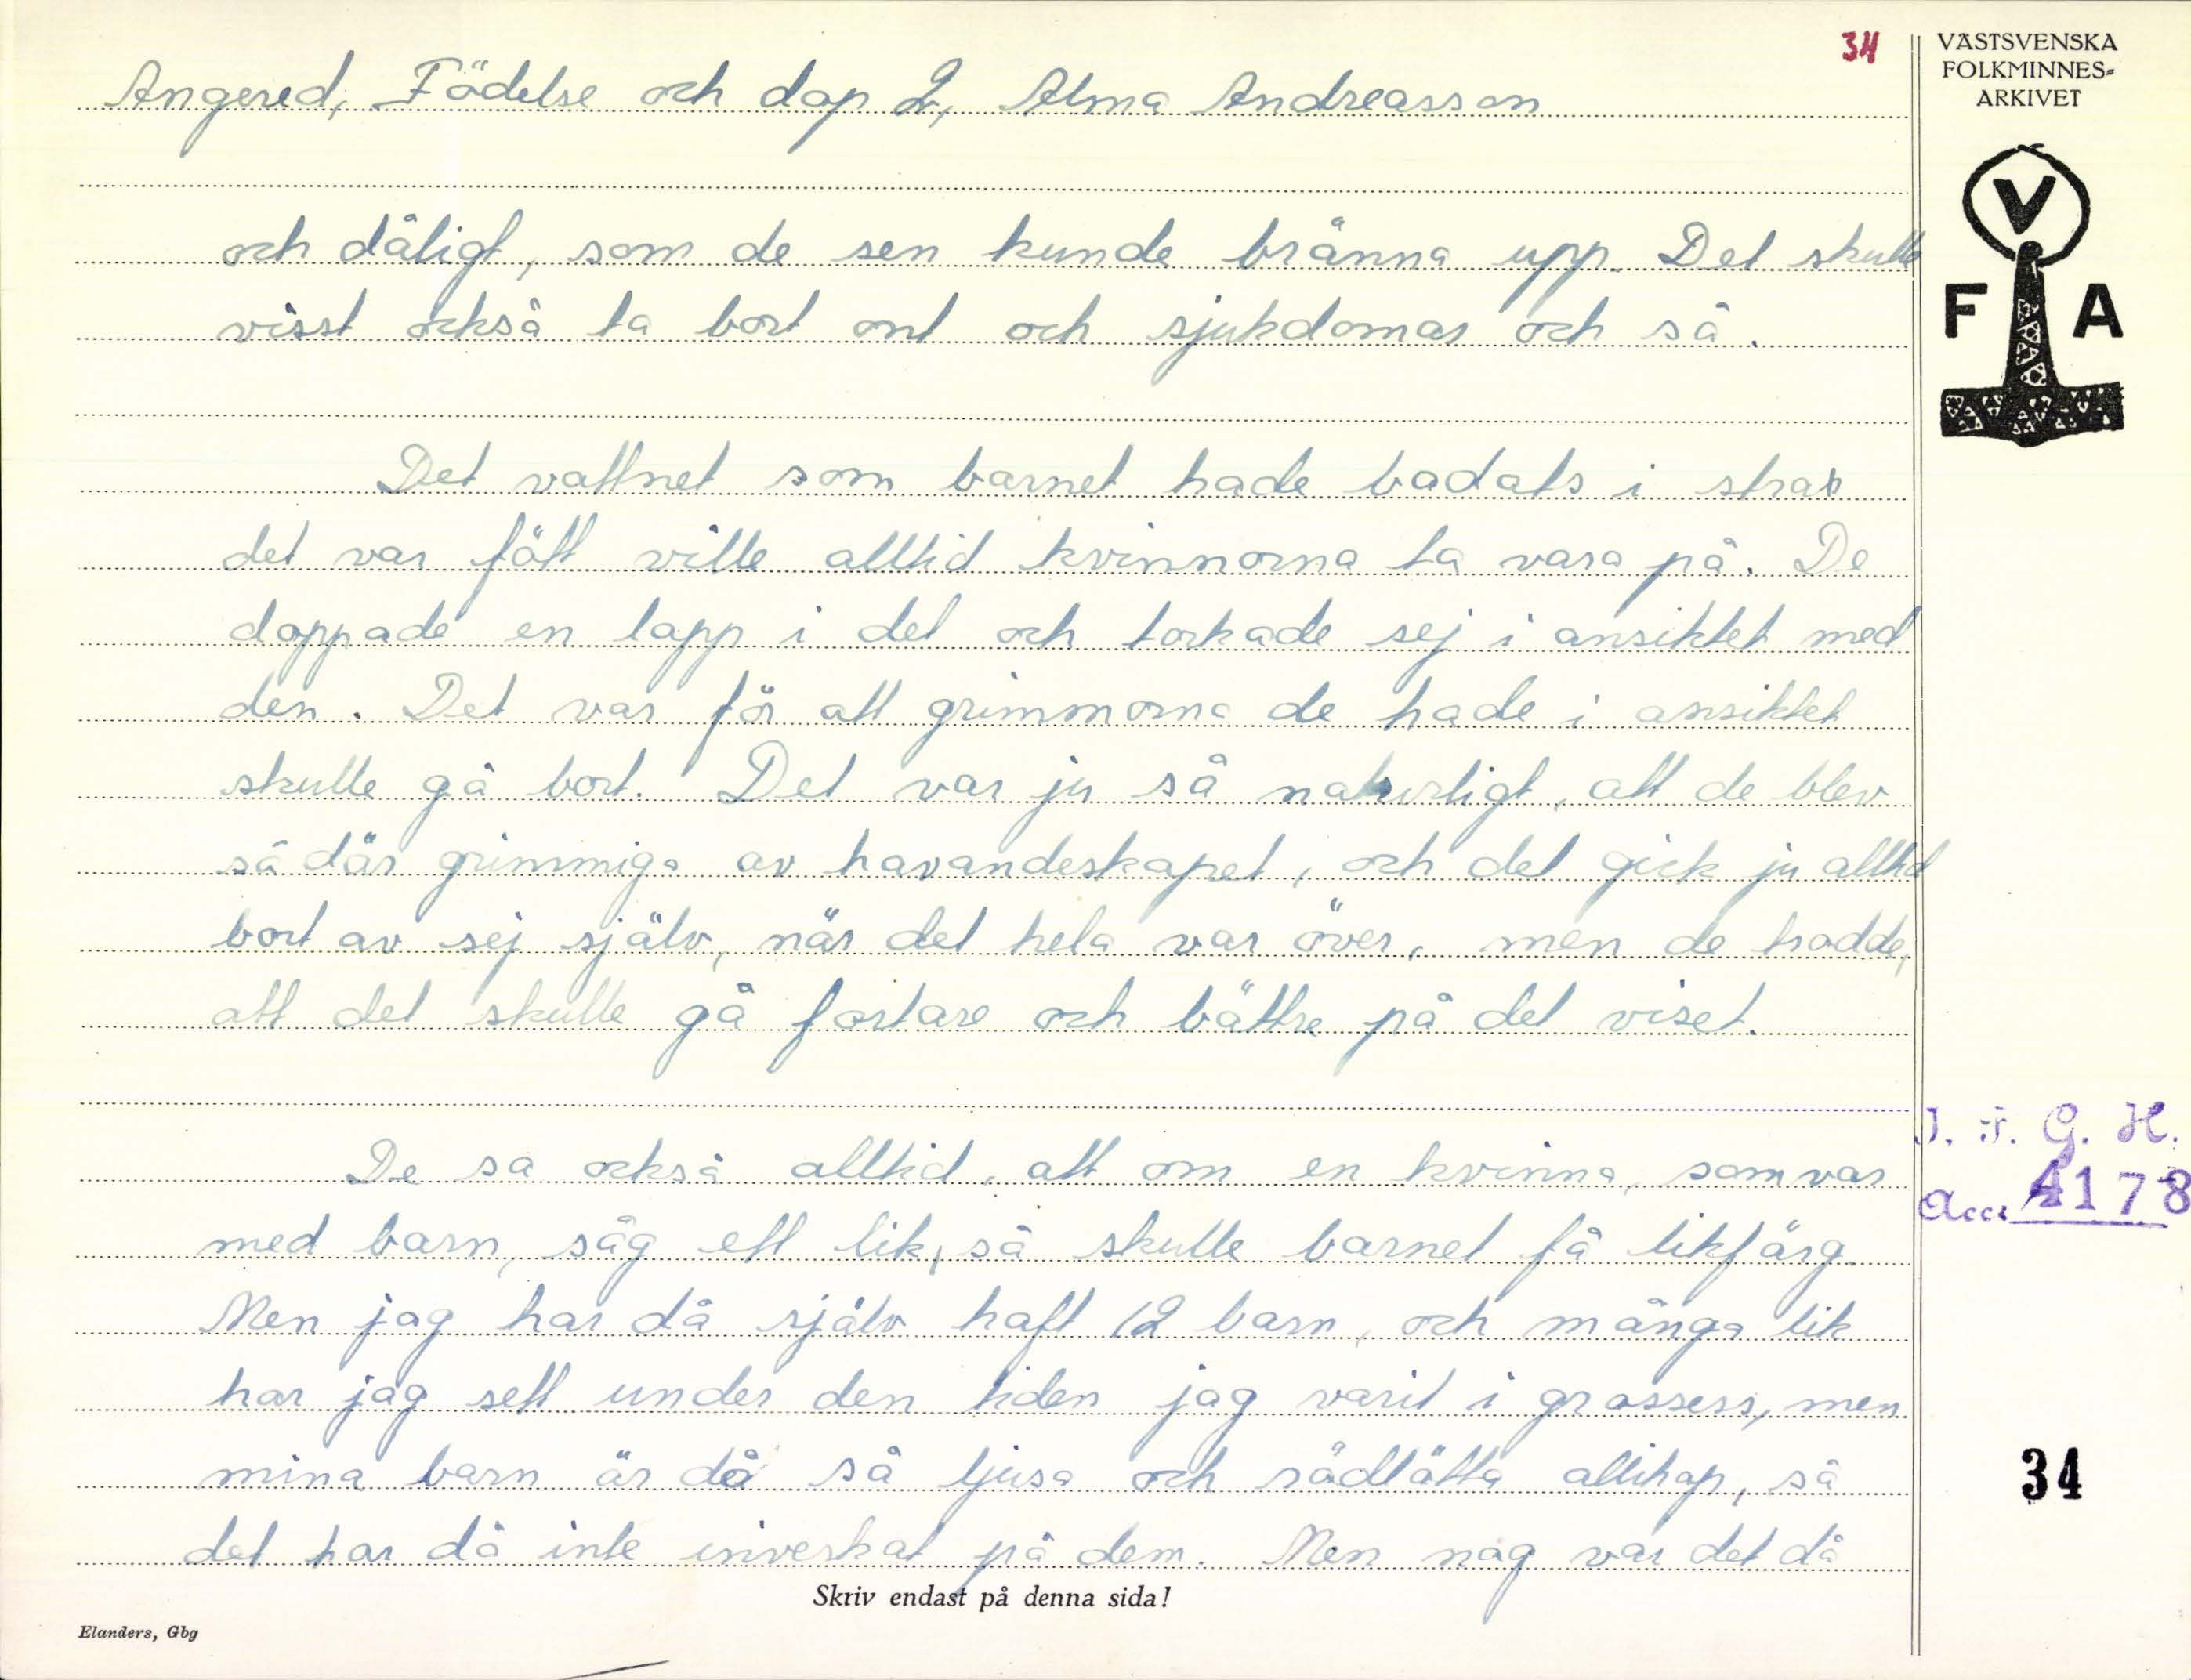 34
VÄSTSVENSKA
FOLKMINNES-
ARKIVET
V
F A
Angered, Födelse och dop 2, Alma Andreasson
och dåligt, som de sen kunde bränna upp. Det skulle
visst också ta bort ont och sjukdomar och så.
Det vattnet som barnet hade badats i strax
det var fött ville alltid kvinnorna ta vara på. De
doppade en lapp i det och torkade sej i ansiktet med
den. Det var för att grimmorna de hade i ansiktet
skulle gå bort. Det var ju så naturligt, att de blev
så där grimmiga av havandeskapet, och det gick ju alltid
bort av sej själv, när det hela var över, men de trodde,
att det skulle gå fortare och bättre på det viset.
De sa också alltid, att om en kvinna, som var
med barn, såg ett lik, så skulle barnet få likfärg.
Men jag har då själv haft 12 barn, och många lik
har jag sett under den tiden jag varit i grossess, men
mina barn är då så ljusa och rödlätta allihop, så
det har då inte inverkat på dem. Men nog var det då
I. F. G. H.
Acc. 4178
34
Skriv endast på denna sida!
Elanders, Gbg